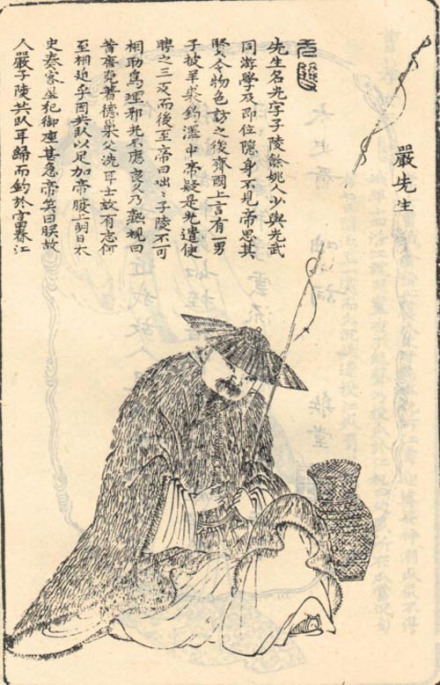 嚴先生
无雙
先生名光字子陵餘姚人少與光武
同游學及即位隱身不見帝思其
賢令物色訪之後齊國上言有一男
子披羊裘釣澤中帝疑是光遣使
聘之三反而後至帝曰咄〻子陵不可
相助為理邪光不應良久乃熟視曰
昔唐堯著德巢父洗耳士故有志何
至相迫乎因共臥以足加帝腹上明日太
史奏客星犯御座甚急帝笑曰朕故
人嚴子陵共臥耳歸而釣於富春江